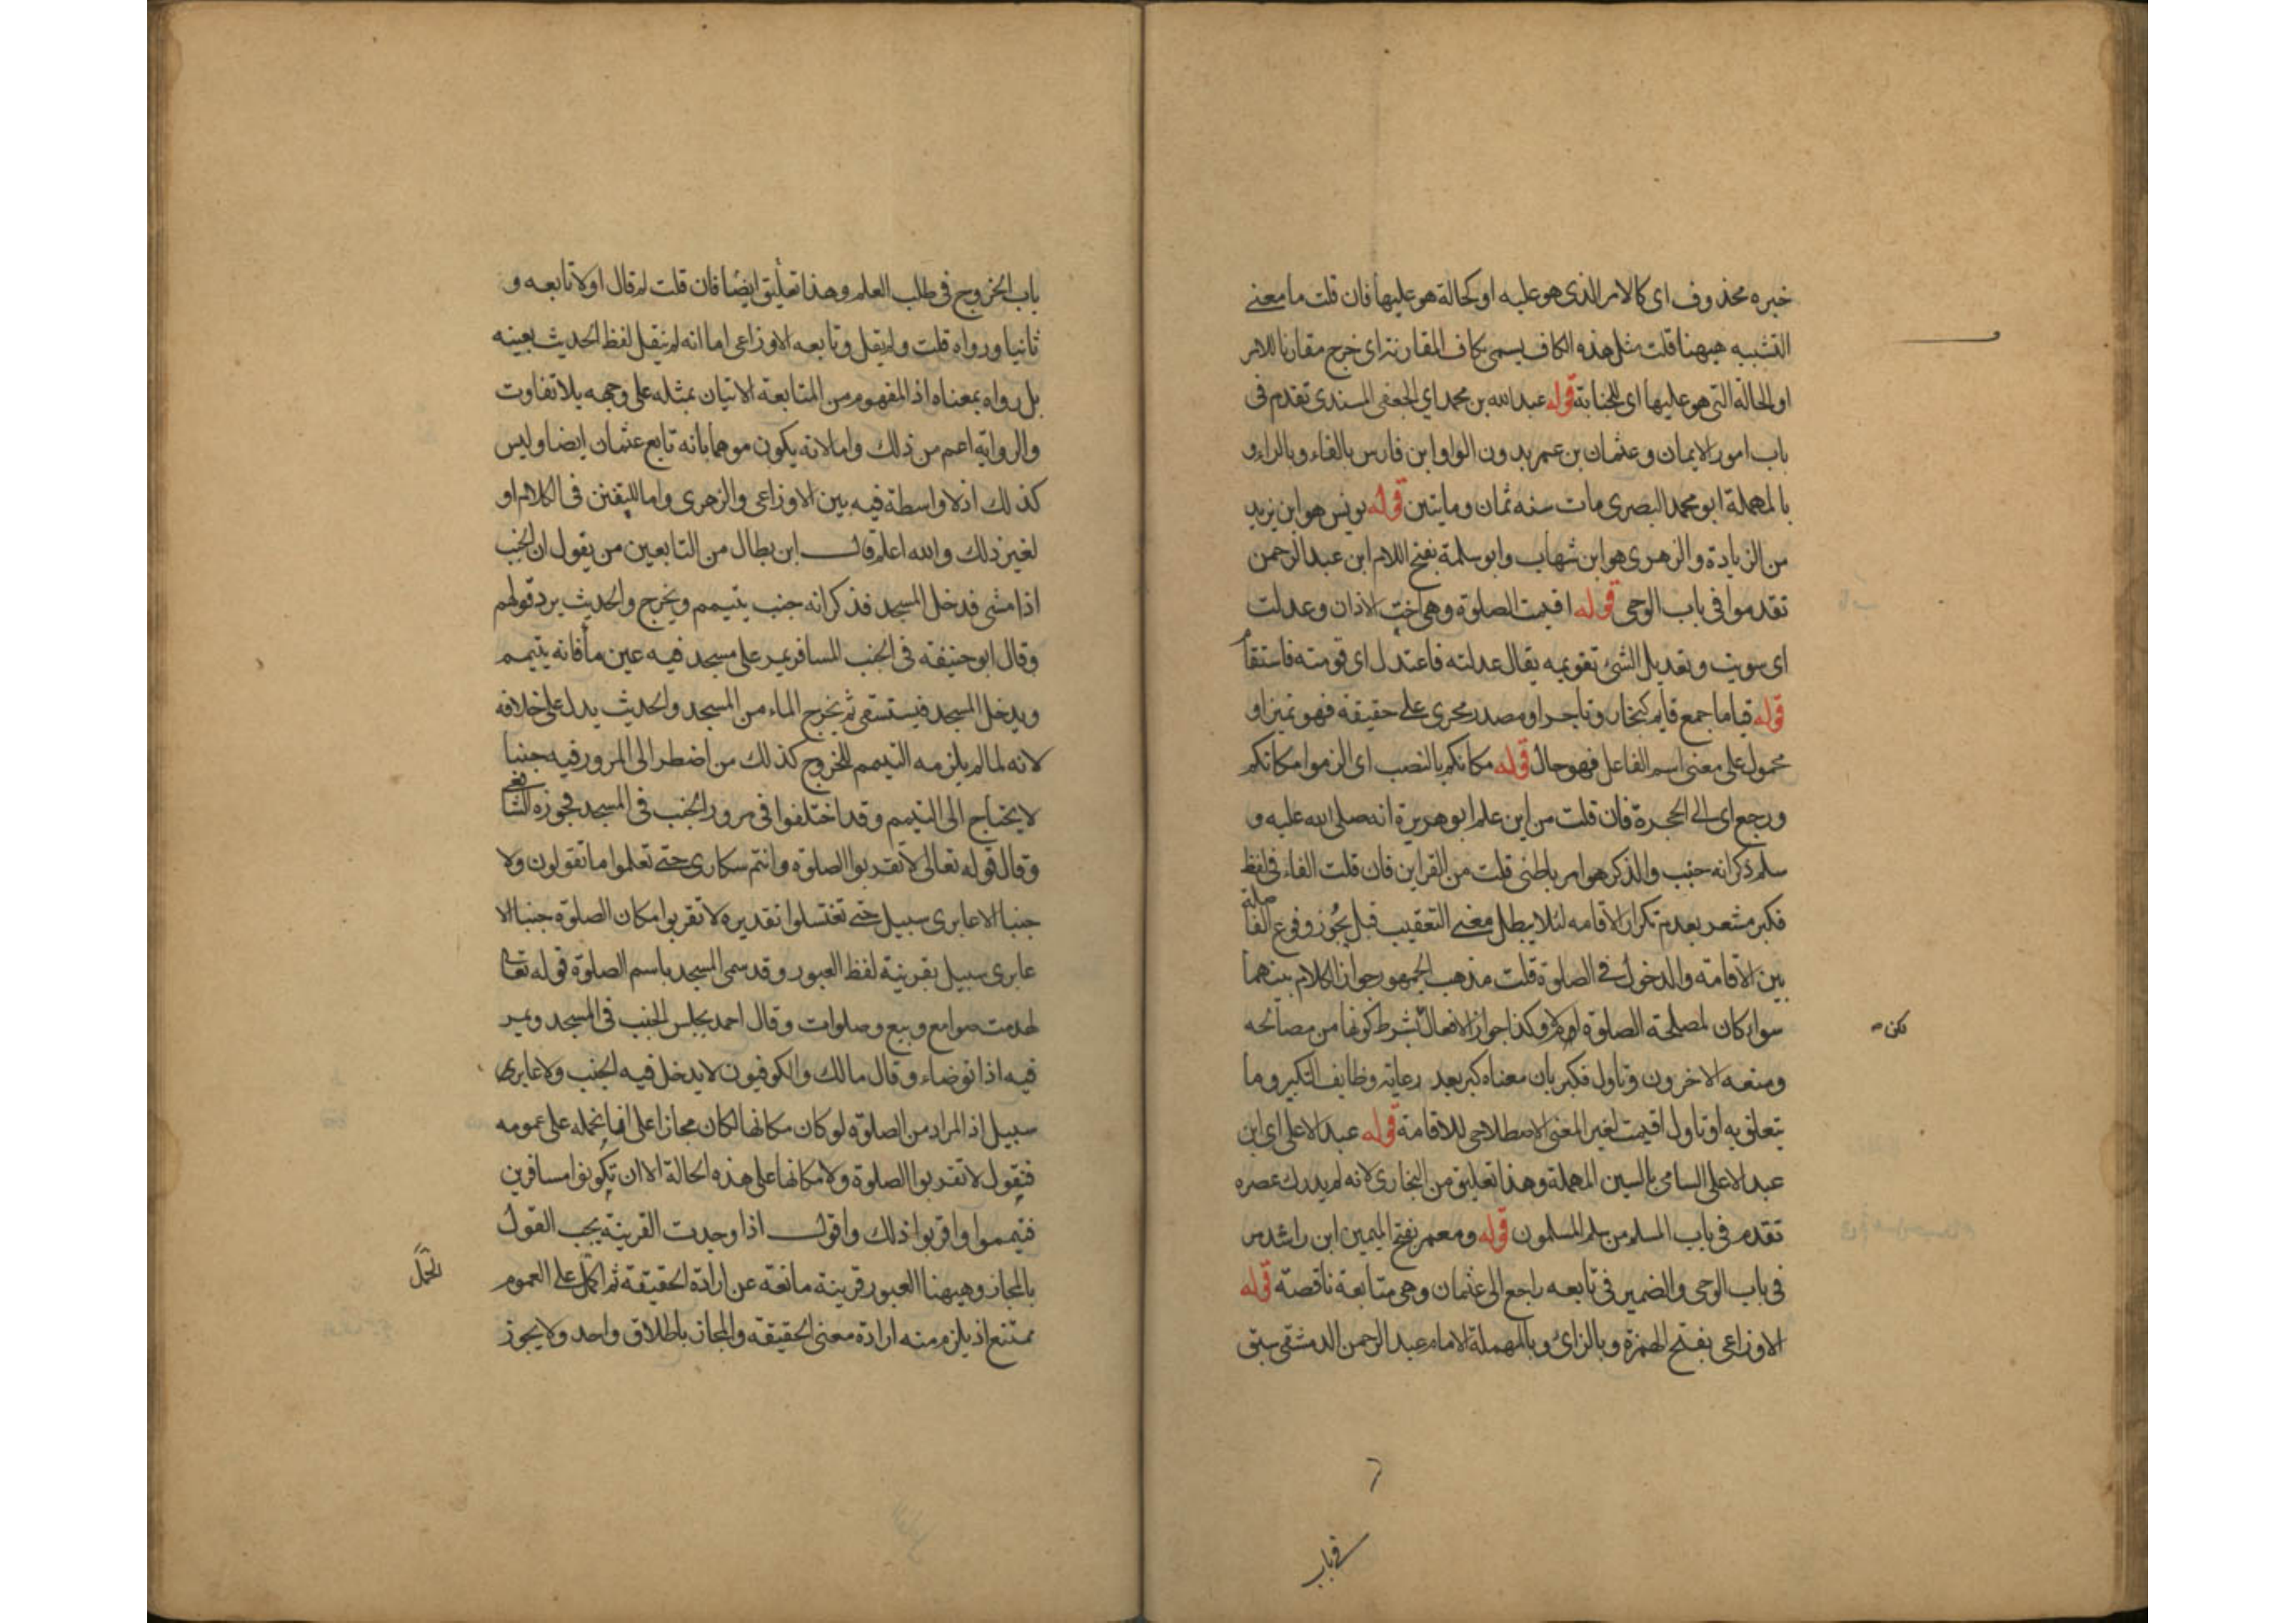 خبره محذوف اى كالامر الذى هو عليه او كحالة هو عليها فان قلت ما معنى
التشبيه ههنا قلت مثل هذه الكاف يسمى بكاف المقارنة اى خرج مقارنا للامر
او الحالة التى هو عليها اى للجنابة قوله عبد الله بن محمد اي الجعفى المسندى تقدم فى
باب امور الايمان وعثمان بن عمر بدون الواو ابن فارس بالفاء وبالراء و
بالمهملة ابو محمد البصرى مات سنه ثمان ومايتين قوله يونس هو ابن يزيد
من الزيادة والزهرى هو ابن شهاب وابو سلمة بفتح اللام ابن عبد الرحمن
تقدموا فى باب الوحى قوله اقيمت الصلوة وهى اخت الاذان وعدلت
اى سويت وتعديل الشئ تقويمه يقال عدلته فاعتدل اى قومته فاستقام
قوله قياما جمع قايم كتجار وتاجر او مصدر مجرى على حقيقة فهو تميز او
محمول على معنى اسم الفاعل فهو حال قوله مكانكم بالنصب اى الزموا مكانكم
ورجع اى الى الحجرة فان قلت من اين علم ابو هريرة انه صلى الله عليه و
سلم ذكر انه جنب والذكر هو امر باطنى قلت من القراين فان قلت الفاء فى لفظ
فكبر مشعر بعدم تكرار الاقامه لئلا يبطل معنى التعقيب قبل يجوز وقوع الفا صلة
بين الاقامة والدخول فى الصلوة قلت مذهب الجمهور جواز الكلام بينهما
سواء كان لمصلحة الصلوة اولا وكذا جواز الافعال بشرط كونها من مصالحه
لكن
ومنعه الاخرون وتاول فكبر بان معناه كبر بعد رعاية وظايف التكبير وما
يتعلق به او تاول اقيمت لغير المعنى الاصطلاحى للاقامة قوله عبد الاعلى اى ابن
عبد الاعلى السامى بالسين المهملة وهذا تعليق من البخارى لانه لم يدرك عصره
تقدم فى باب المسلم من سلم المسلمون قوله ومعمر بفتح الميمين ابن راشد مر
فى باب الوحى والضمير فى تابعه راجع الى عثمان وهى متابعة ناقصة قوله
الاوزاعى بفتح الهمزة وبالزاى وبالمهملة الامام عبد الرحمن الدمشقى سبق
فى باب
باب الخروج فى طلب العلم وهذا تعليق ايضا فان قلت لم قال اولا تابعه و
ثانيا ورواه قلت ولم يقل وتابعه الاوزاعى اما انه لم ينقل لفظ الحديث بعينه
بل رواه بمعناه اذ المفهوم من المتابعة الاتيان بمثله على وجهه بلا تفاوت
والرواية اعم من ذلك واما لانه يكون موهما بانه تابع عثمان ايضا وليس
كذلك اذ لا واسطة فيه بين الاوزاعى والزهرى واما للتفنن فى الكلام او
لغير ذلك والله اعلم قال ابن بطال من التابعين من يقول ان الجنب
اذا مشى فدخل المسجد فذكر انه جنب يتيمم ويخرج والحديث يرد قولهم
وقال ابو حنيفة فى الجنب المسافر يمر على مسجد فيه عين ماء فانه يتيمم
ويدخل المسجد فيستسقى ثم يخرج الماء من المسجد والحديث يدل على خلافه
لانه لما لم يلزمه التيمم للخروج كذلك من اضطر الى المرور فيه جنبا
لا يحتاج الى التيمم وقد اختلفوا فى مرور الجنب فى المسجد فجوزه الشافعى
وقال قوله تعالى لا تقربوا الصلوة وانتم سكارى حتى تعلموا ما تقولون ولا
جنبا الا عابرى سبيل حتى تغتسلوا تقديره لا تقربوا مكان الصلوة جنبا الا
عابرى سبيل بقرينة لفظ العبور وقد سمى المسجد باسم الصلوة قوله تعالى
لهدمت صوامع وبيع وصلوات وقال احمد يجلس الجنب فى المسجد ويمر
فيه اذا توضاء وقال مالك والكوفيون لا يدخل فيه الجنب ولا عابرى
سبيل اذ المراد من الصلوة لو كان مكانها لكان مجازا على انا نحمله على عمومه
فنقول لا تقربوا الصلوة ولا مكانها على هذه الحالة الا ان تكونوا مسافرين
فتيمموا واقربوا ذلك واقول اذا وجدت القرينة يجب القول
بالمجاز وههنا العبور قرينة مانعة عن ارادة الحقيقة ثم الحمل على العموم
الحمل
ممتنع اذ يلزم منه ارادة معنى الحقيقة والمجاز باطلاق واحد ولا يجوز